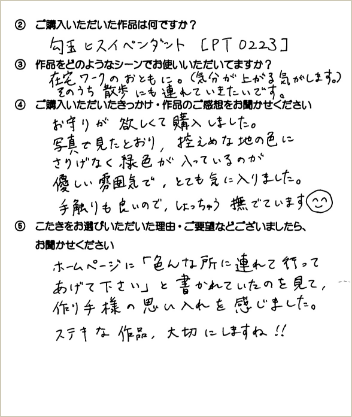 ② ご購入いただいた作品は何ですか?
勾玉ヒスイペンダント [PT0223]
③ 作品をどのようなシーンでお使いいただいてますか?
在宅ワークのおともに。(気分が上がる気がします。)
そのうち散歩にも連れていきたいです。
④ ご購入いただいたきっかけ・作品のご感想をお聞かせください
お守りが欲しくて購入しました。
写真で見たとおり、控えめな地の色に
さりげなく緑色が入っているのが
優しい雰囲気で、とても気に入りました。
手触りも良いので、しょっちゅう撫でています
⑤ こたきをお選びいただいた理由・ご要望などございましたら、
お聞かせください
ホームページに「色んな所に連れて行って
あげて下さい」と書かれていたのを見て、
作り手様の思い入れを感じました。
ステキな作品、大切にしますね!!